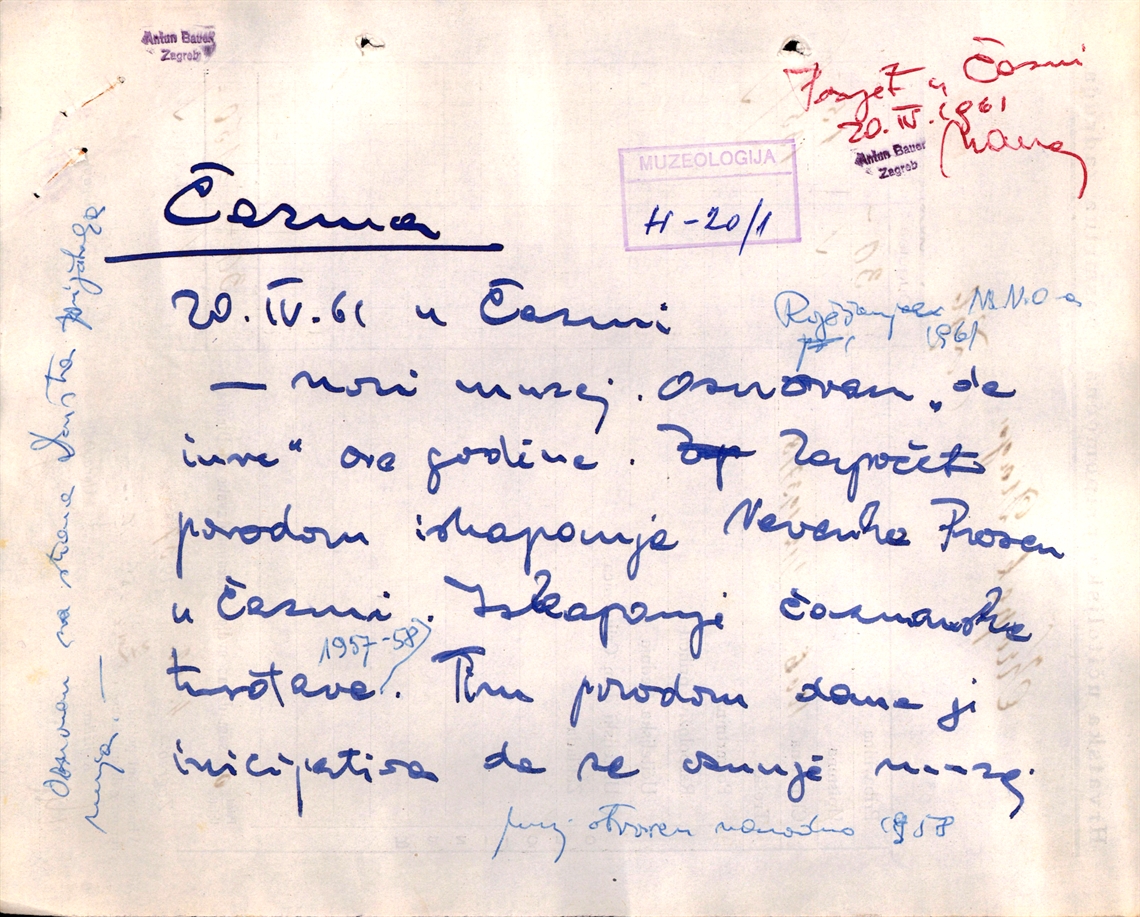 Anton Bauer
Zagreb
Posjet u Časmi
20. IV. 1961
Anton Bauer
Zagreb
MUZEOLOGIJA
H-20/1
Časma
20. IV. 61 u Časmi
N.N.O-a
1961
— novi muzej. Osnovan „de
iure“ ove godine. Započeto
povodom iskapanja Nevenke Prosen
u Časmi. Iskapanje čazmanske
tvrđave. 1957-58
Tim povodom dana je
inicijativa da se osnuje muzej
muzej otvoren narodno 1958
Osnovan na strane Društva prijatelja
muzeja. —